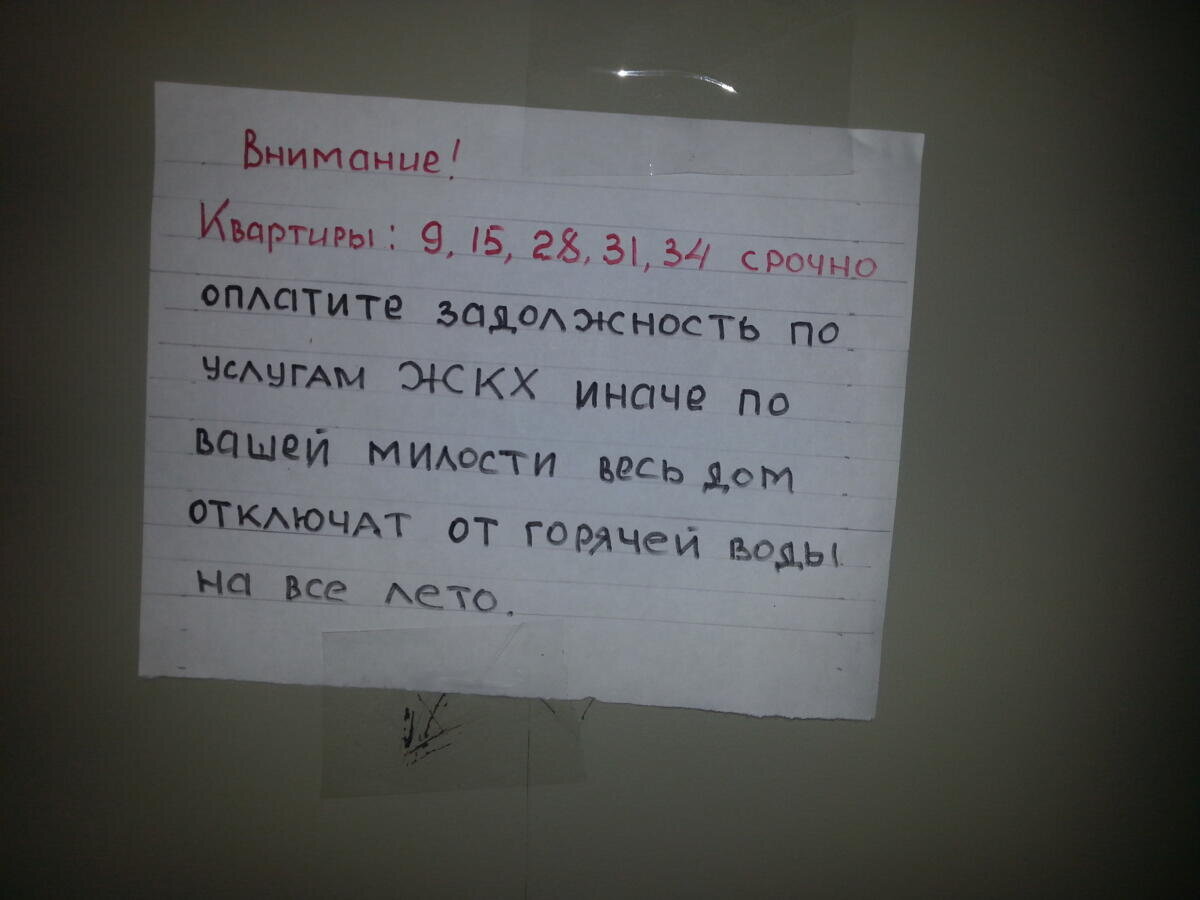 Внимание!
Квартиры: 9, 15, 28, 31, 34 срочно
оплатите задолжность по
услугам ЖСКХ иначе по
вашей милости весь дом
отключат от горячей воды
на все лето.